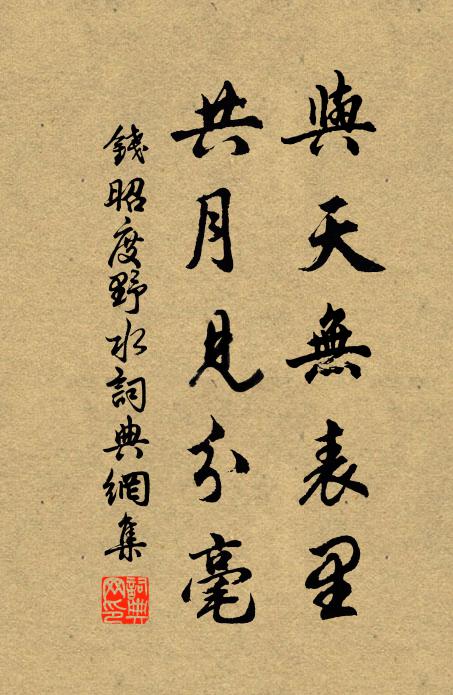 與天無表里
共月見分毫
錢昭度野水詞典網集
詞典網印